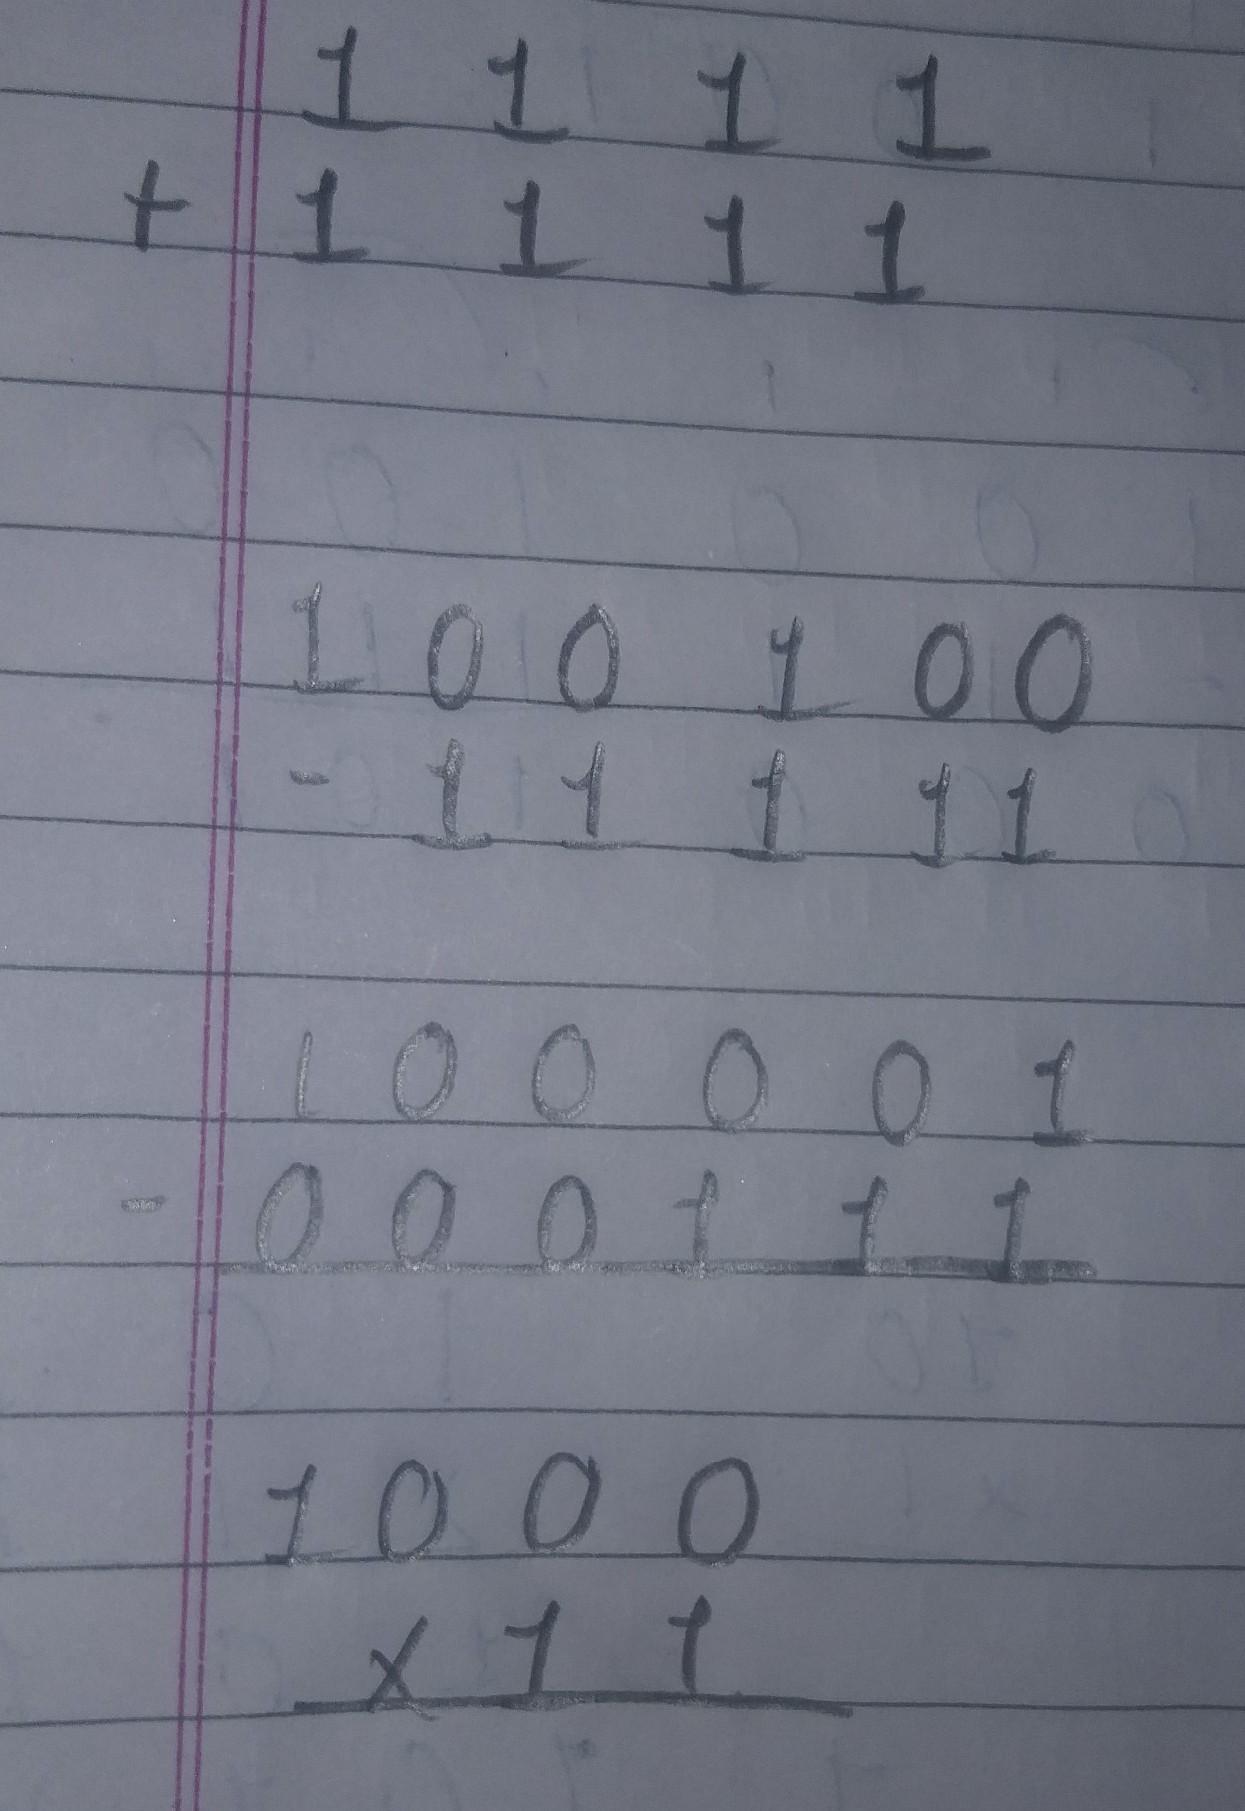 1 1 1 1
+ 1 1 1 1
1 0 0 1 0 0
- 1 1 1 1 1
1 0 0 0 0 1
- 0 0 0 1 1 1
1 0 0 0
x 1 1